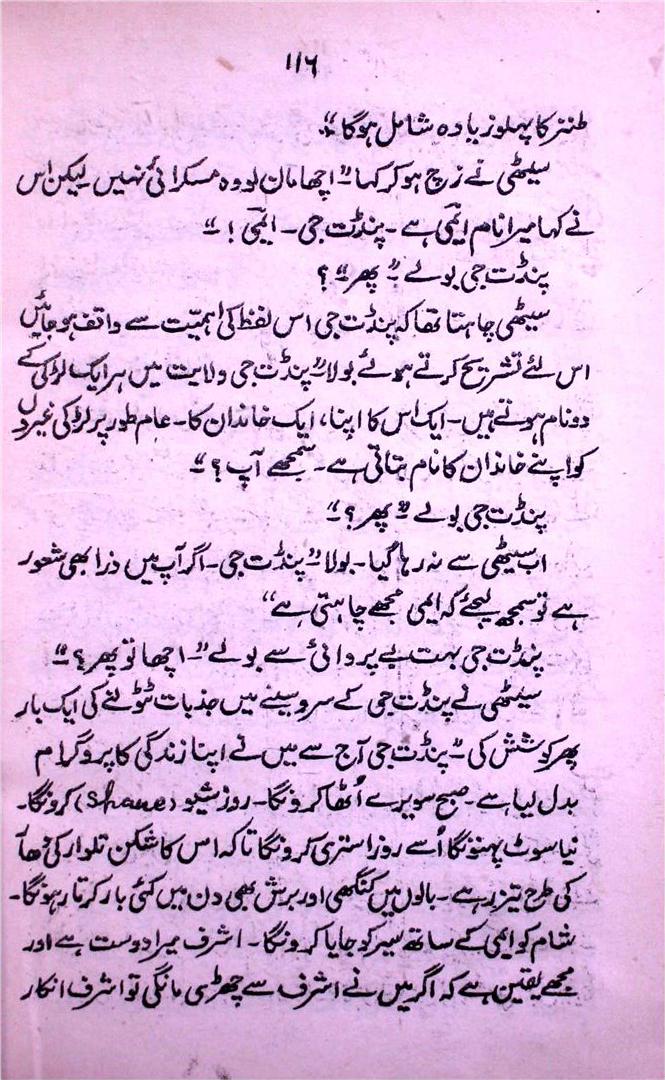 ۱۱۶
طنز کا پہلو زیادہ شامل ہوگا ‘‘
سیٹھی نے زچ ہو کر کہا ’’ اچھا مان لو وہ مسکرائی نہیں لیکن اس
نے کہا میرا نام ایمی ہے ۔ پنڈت جی ۔ ایمی ! ‘‘
پنڈت جی بولے ’’ پھر ‘‘ ؟
سیٹھی چاہتا تھا کہ پنڈت جی اس لفظ کی اہمیت سے واقف ہو جائیں
اس لئے تشریح کرتے ہوئے بولا ’’ پنڈت جی ولایت میں ہر ایک لڑکی کے
دو نام ہوتے ہیں ۔ ایک اس کا اپنا، ایک خاندان کا ۔ عام طور پر لڑکی غیروں
کو اپنے خاندان کا نام بتاتی ہے ۔ سمجھے آپ ؟ ‘‘
پنڈت جی بولے ’’ پھر ؟ ‘‘
اب سیٹھی سے نہ رہا گیا ۔ بولا ’’ پنڈت جی ۔ اگر آپ میں ذرا بھی شعور
ہے تو سمجھ لیجئے کہ ایمی مجھے چاہتی ہے ‘‘
پنڈت جی بہت بے پروائی سے بولے ’’ ۔ اچھا تو پھر ؟ ‘‘
سیٹھی نے پنڈت جی کے سرو سینے میں جذبات ٹٹولنے کی ایک بار
پھر کوشش کی ’’ پنڈت جی آج سے میں نے اپنا زندگی کا پروگرام
بدل لیا ہے ۔ صبح سویرے اُٹھا کرونگا ۔ روز شیو (Shave) کرونگا ۔
نیا سوٹ پہنونگا اُسے روز استری کرونگا تاکہ اس کا شکن تلوار کی دھار
کی طرح تیز رہے ۔ بالوں میں کنگھی اور برش بھی دن میں کئی بار کرتا رہونگا ۔
شام کو ایمی کے ساتھ سیر کو جایا کرونگا ۔ اشرف میرا دوست ہے اور
مجھے یقین ہے کہ اگر میں نے اشرف سے چھڑی مانگی تو اشرف انکار